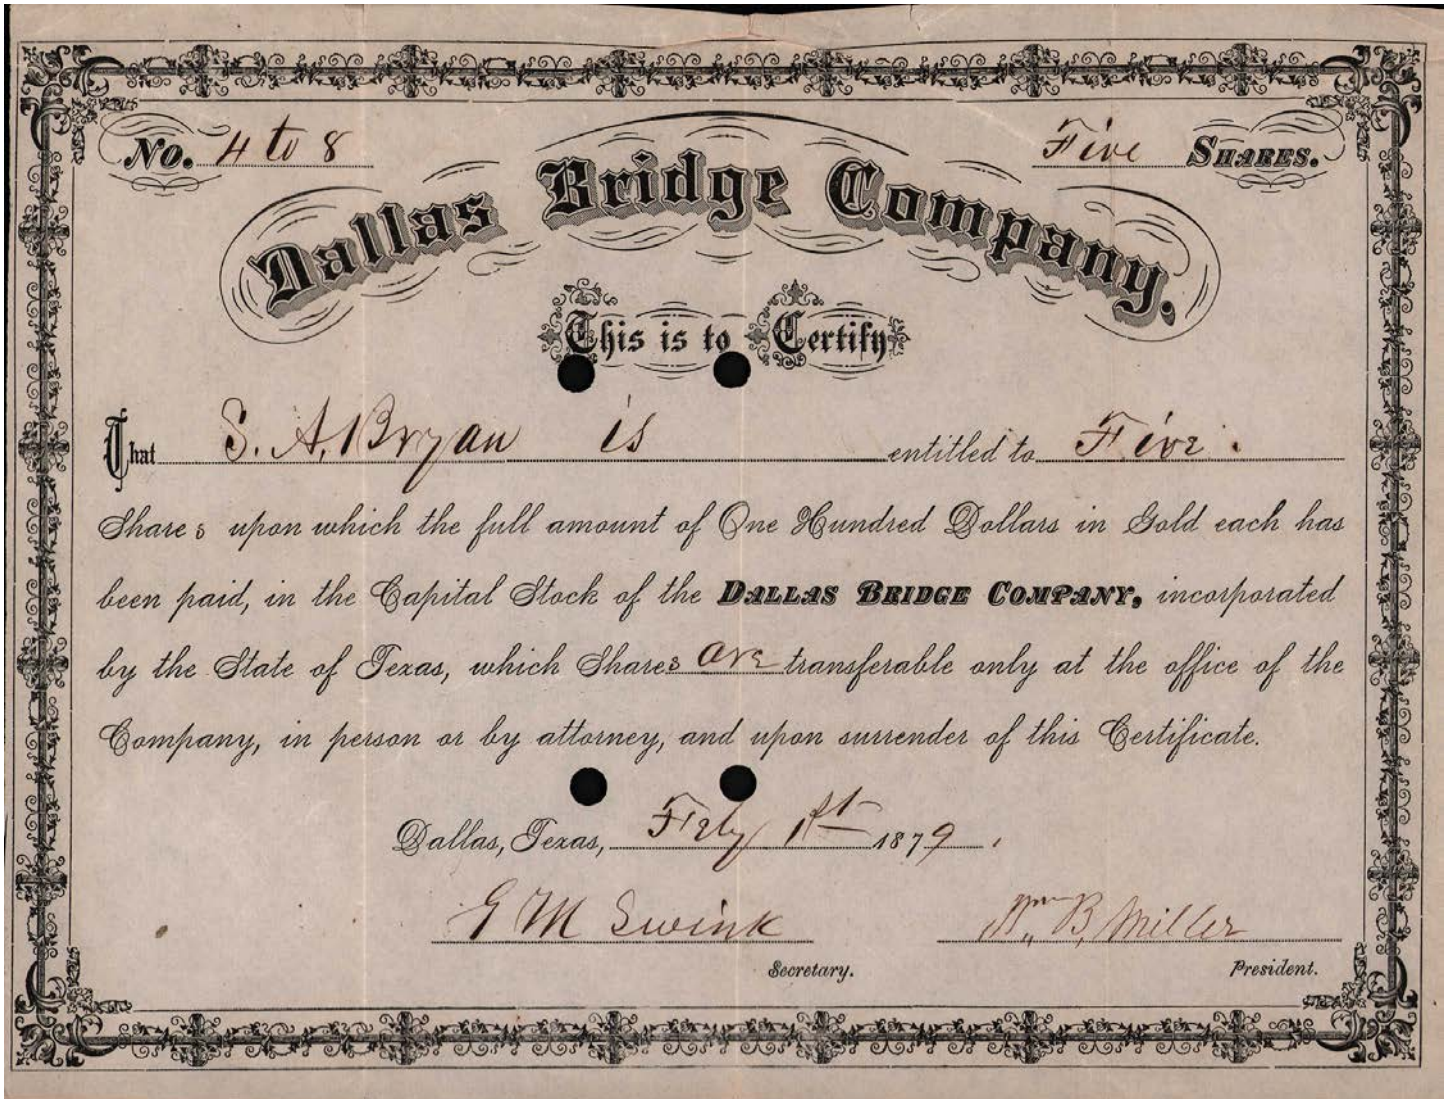 No. 4 to 8
Five SHARES.
Dallas Bridge Company.
This is to Certify
That S. A. Bryan is entitled to Five.
Shares upon which the full amount of One Hundred Dollars in Gold each has
been paid, in the Capital Stock of the DALLAS BRIDGE COMPANY, incorporated
by the State of Texas, which Shares are transferable only at the office of the
Company, in person or by attorney, and upon surrender of this Certificate.
Dallas, Texas, Feby 1st 1879.
G M Swink
Wm. B. Miller
Secretary.
President.